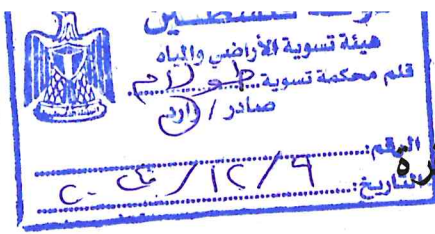 دولة فلسطين
هيئة تسوية الأراضي والمياه
قلم محكمة تسوية طولكرم
صادر / وارد
الرقم:
التاريخ: ٩/١٢/٢٠٢٤